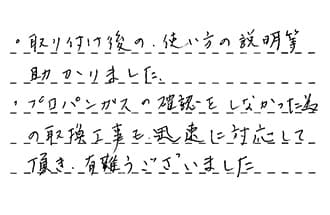 ・取り付け後の、使い方の説明等
助かりました、
・プロパンガスの確認をしなかった為
の取換工事も、迅速に対応して
頂き、有難うございました